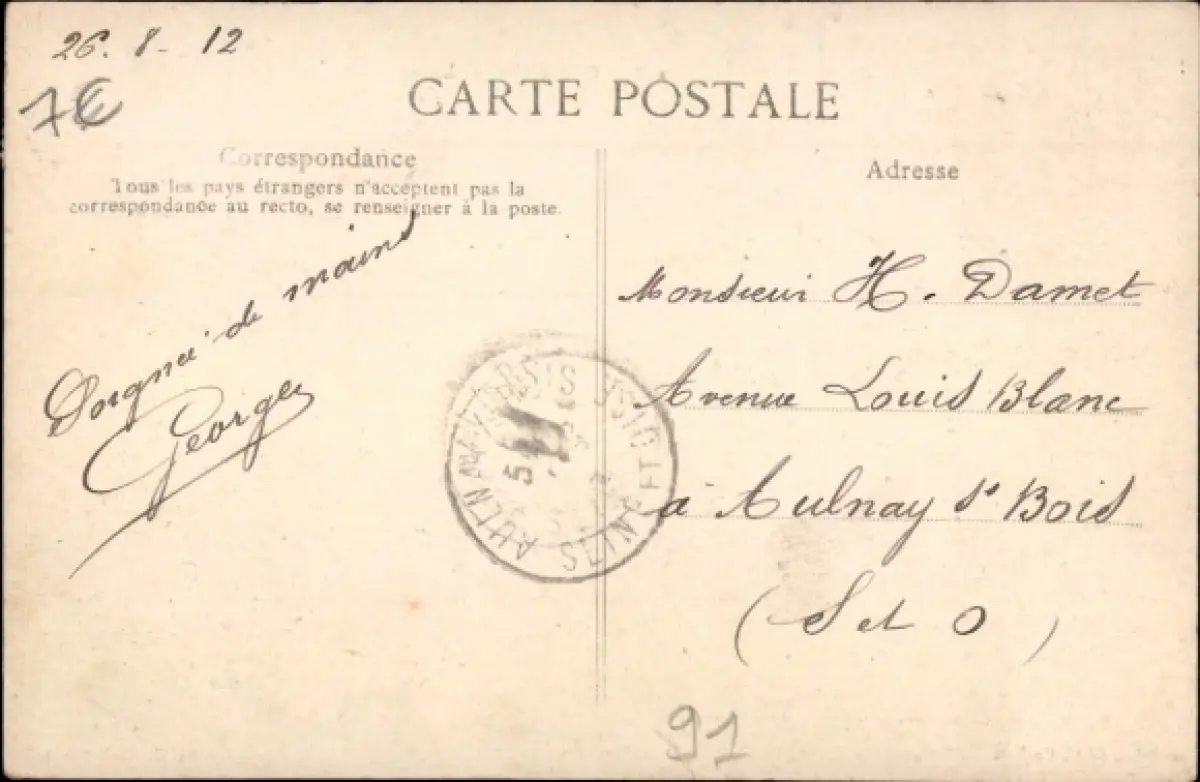 26. 8 - 12
7€
CARTE POSTALE
Correspondance
Tous les pays étrangers n'acceptent pas la
correspondance au recto, se renseigner à la poste.
Adresse
Poignée de mains
Georges
Monsieur H. Damet
Avenue Louis Blanc
à Aulnay s/s Bois
(S et O)
AULNAY
SEINE ET OISE
91